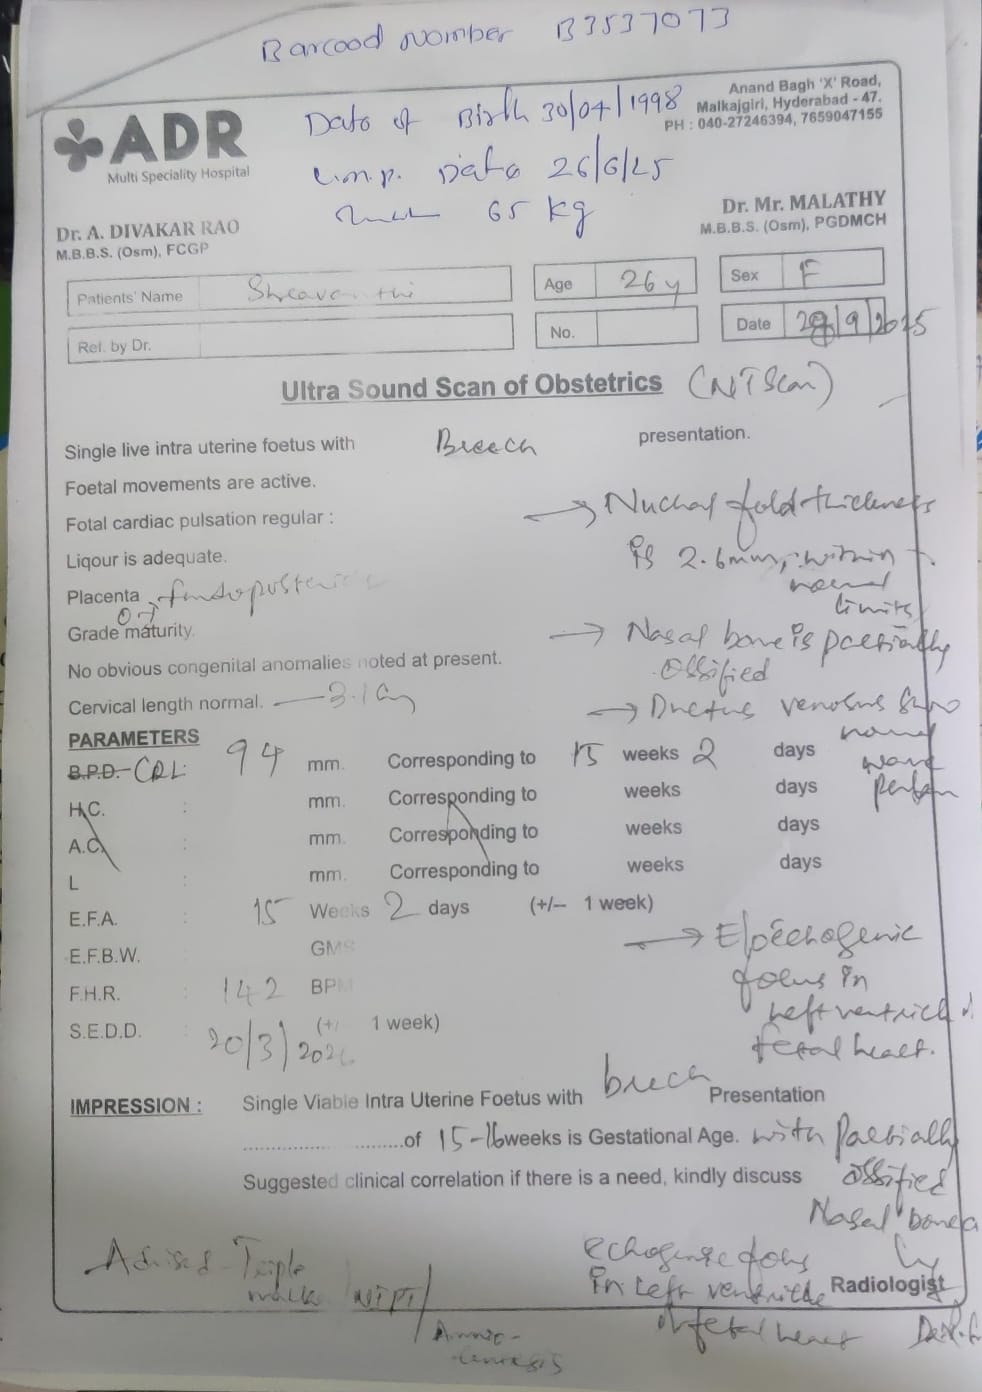 Barcood Number B3537073
ADR
Multi Speciality Hospital
Anand Bagh 'X' Road,
Malkajgiri, Hyderabad - 47.
PH : 040-27246394, 7659047155
Date of Birth 30/04/1998
L.m.p. Date 26/6/25
65 kg
Dr. A. DIVAKAR RAO
M.B.B.S. (Osm), FCGP
Dr. Mr. MALATHY
M.B.B.S. (Osm), PGDMCH
Patients' Name Shravanthi
Age 26 y
Sex F
Rel. by Dr.
No.
Date 28/9/2025
Ultra Sound Scan of Obstetrics (NT Scan)
Single live intra uterine foetus with Breech presentation.
Foetal movements are active.
Fotal cardiac pulsation regular :
→ Nuchal fold thickness
is 2.6mm, within
normal
limits
Liqour is adequate.
Placenta fundoposterior
Grade 0-1 maturity.
→ Nasal bone is partially
ossified
No obvious congenital anomalies noted at present.
Cervical length normal. — 3.1 cm
→ Ductus venosus show
normal
wave
pattern
PARAMETERS
B.P.D. CRL: 94 mm. Corresponding to 15 weeks 2 days
H.C. : mm. Corresponding to weeks days
A.C. : mm. Corresponding to weeks days
L : mm. Corresponding to weeks days
E.F.A. : 15 Weeks 2 days (+/– 1 week)
E.F.B.W. GMS
F.H.R. : 142 BPM
S.E.D.D. : 20/3/2026 (+/ 1 week)
→ E/o echogenic
focus in
left ventricle of
fetal heart.
IMPRESSION : Single Viable Intra Uterine Foetus with breech Presentation
.......................of 15-16 weeks is Gestational Age. with partially
Suggested clinical correlation if there is a need, kindly discuss ossified
Nasal bone &
echogenic focus
in left ventricle
of fetal heart
Radiologist
Advised - Triple
marker / NIPT /
Amnio-
centesis